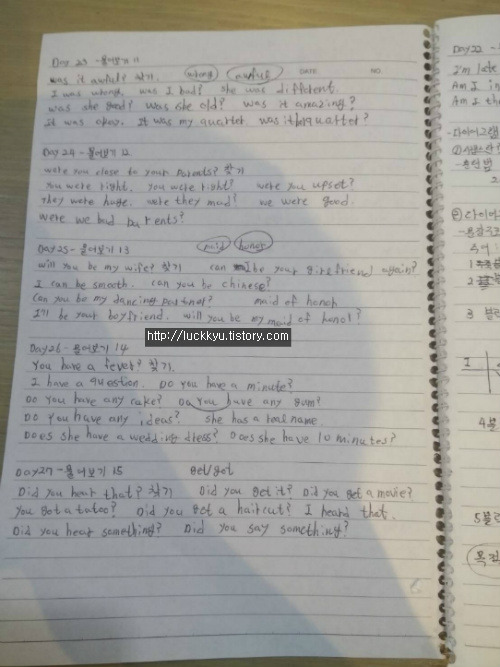 Day 23 - 물어보기 11
was it awful? 찾기. wrong awful DATE NO
I was wrong. was I bad? she was different.
was she good? was she old? was it amazing?
It was okay. It was my quarter. was it quarter?
Day 24 - 물어보기 12
were you close to your parents? 찾기
You were right. you were right? were you upset?
They were huge. were they mad? we were good.
were we bad parents?
Day 25 - 물어보기 13 honor
will you be my wife? 찾기 can I be your girlfriend again?
I can be smooth. can you be chinese?
Can you be my dancing partner? maid of honor
I'll be your boyfriend. will you be my maid of honor?
http://luckkyu.tistory.com
Day 26 - 물어보기 14
You have a fever? 찾기.
I have a question. Do you have a minute?
Do you have any cake? Do you have any gum?
Do you have any ideas? she has a real name.
Does she have a wedding dress? Does she have 10 minutes?
Day 27 - 물어보기 15 get/got
Did you hear that? 찾기 Did you get it? Did you get a movie?
You got a tatoo? Did you get a haircut? I heard that.
Did you hear something? Did you say something?
Day 22 -
I'm late
Am I in
Am I the
- 다이어그램
1
2
3
I
4블
5블런